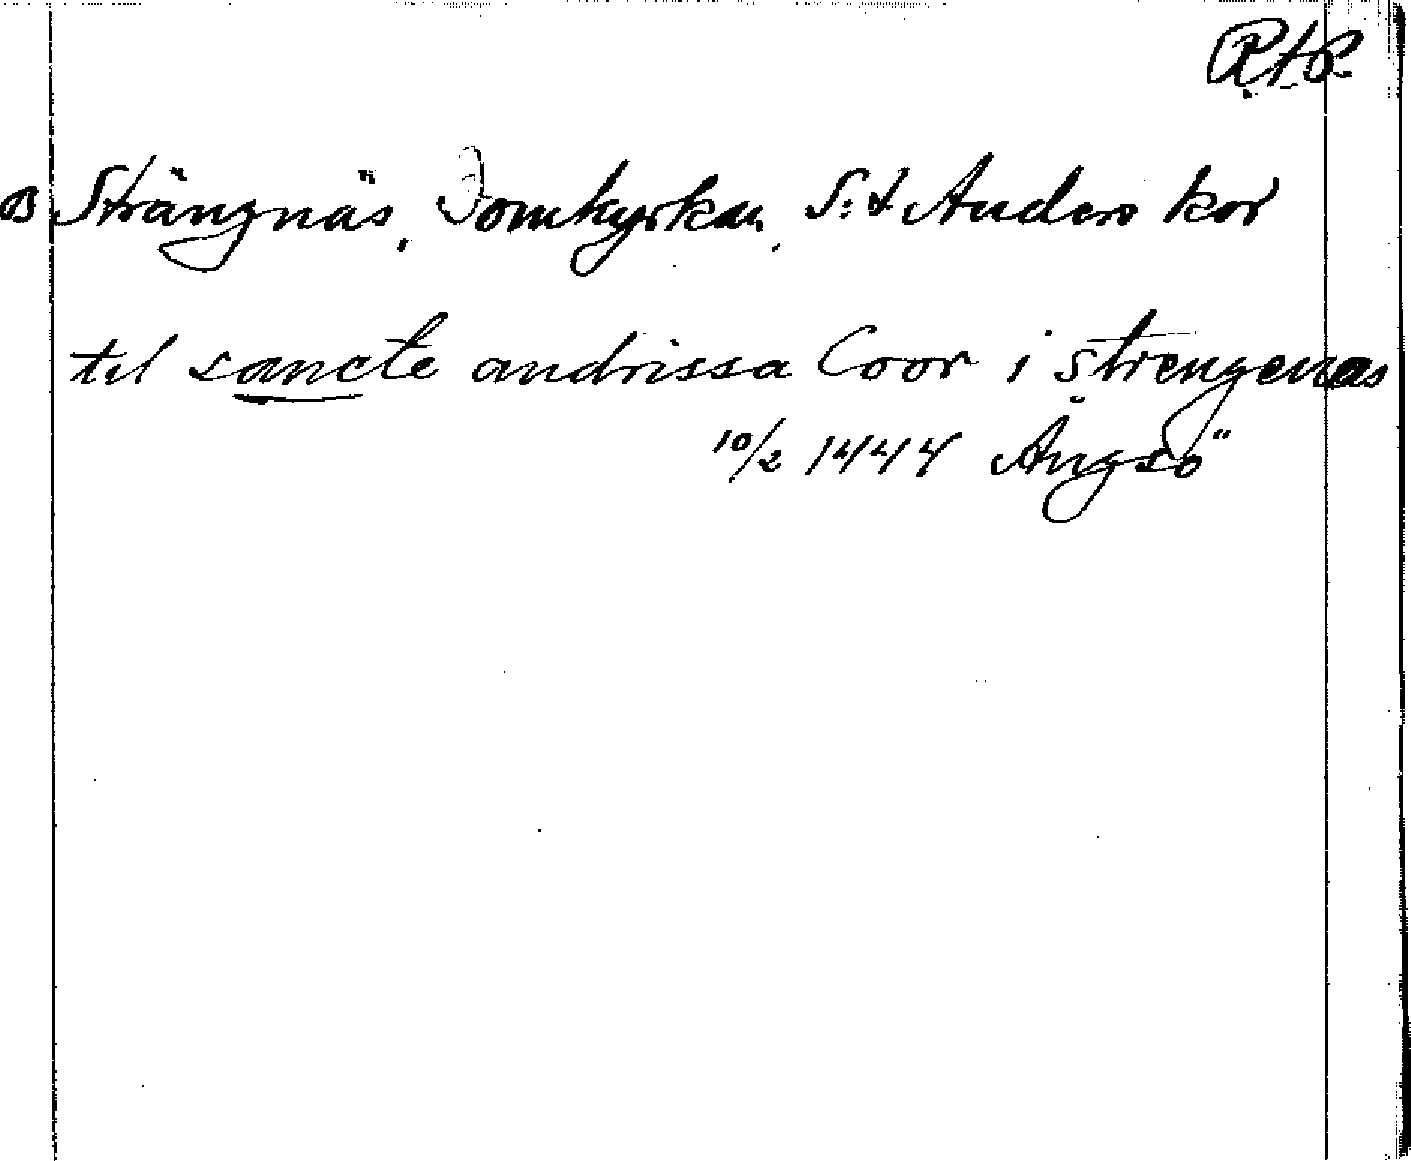 RAP.
B Strängnäs, Domkyrkan, S:t Anders kor
til sancte andrissa Coor i strengenæs
10/2 1444 Ängsö